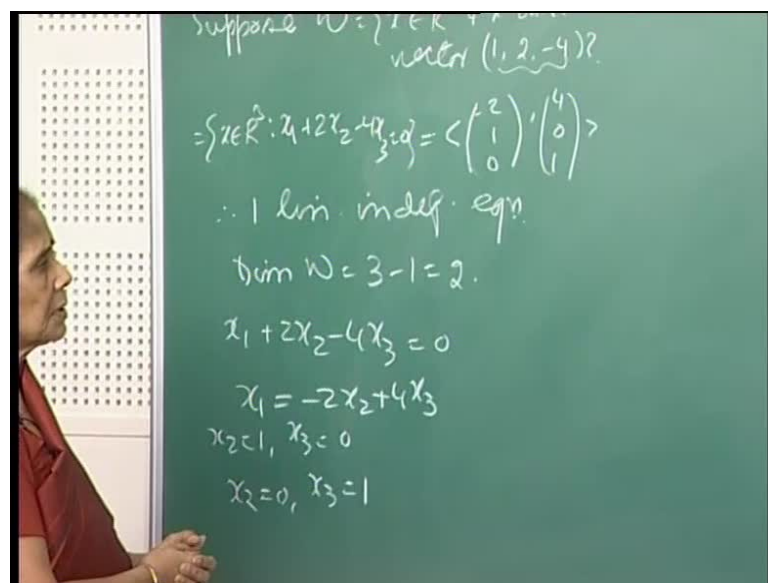 Suppose W = {x∈R
vector (1, 2, -4)?
= {x∈R³ : x₁+2x₂-4x₃=0} = <(-2 1 0), (4 0 1)>
∴ 1 lin. indep. eqn.
Dim W = 3-1 = 2.
x₁ + 2x₂ - 4x₃ = 0
x₁ = -2x₂+4x₃
x₂=1, x₃=0
x₂=0, x₃=1